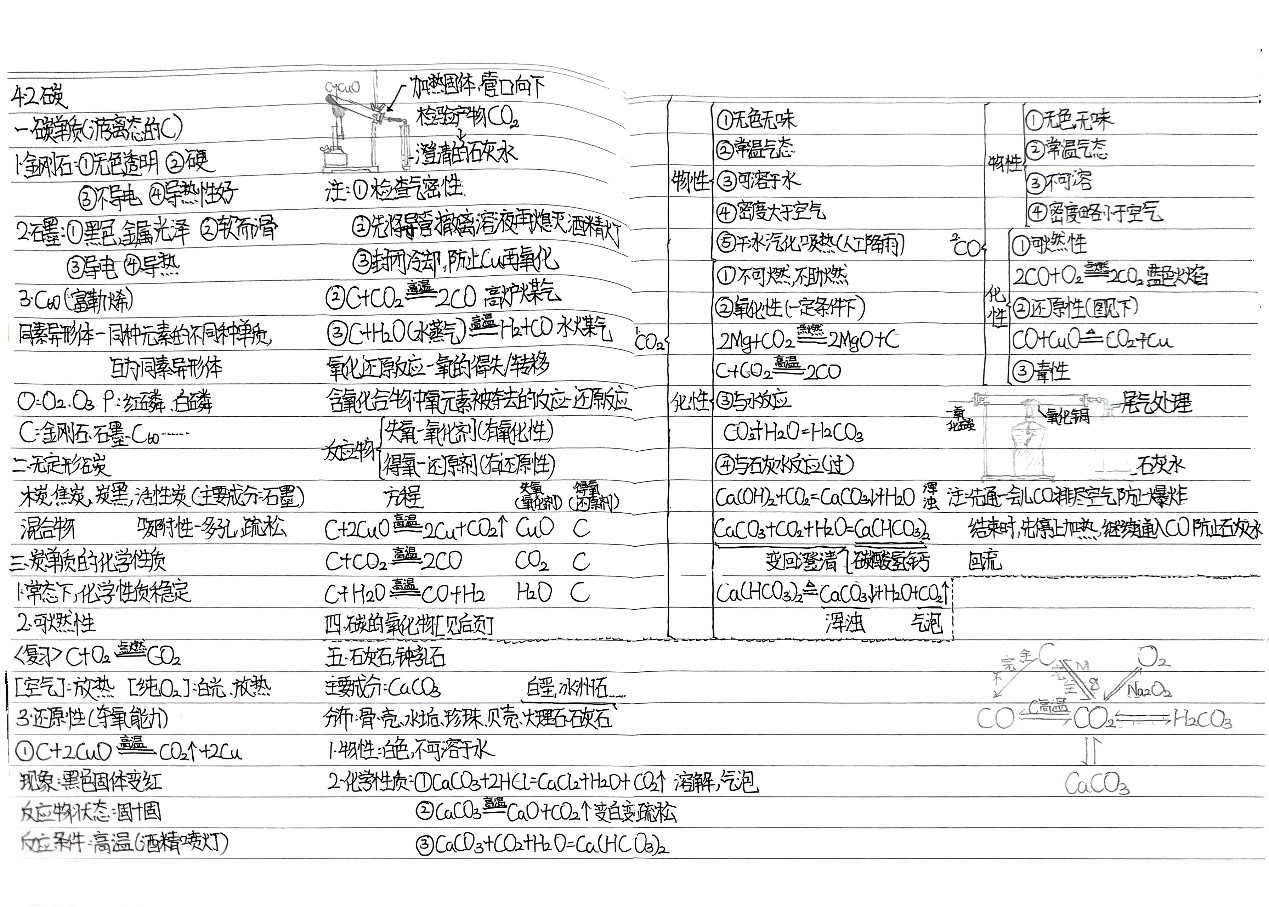 4.2碳
一.碳单质(游离态的C)
1.金刚石:①无色透明 ②硬
③不导电 ④导热性好
2.石墨:①黑色,金属光泽 ②软而滑
③导电 ④导热
3.C60(富勒烯)
同素异形体—同种元素的不同种单质,
互为同素异形体
O:O2、O3 P:红磷、白磷
C:金刚石、石墨、C60……
二.无定形碳
木炭,焦炭,炭黑,活性炭(主要成分:石墨)
混合物 吸附性—多孔,疏松
三.炭单质的化学性质
1.常态下,化学性质稳定
2.可燃性
<复习>C+O2 点燃 CO2
[空气]:放热 [纯O2]:白光,放热
3.还原性(夺氧能力)
①C+2CuO 高温 CO2↑+2Cu
现象:黑色固体变红
反应物状态:固+固
反应条件:高温(酒精喷灯)
C+CuO
加热固体,管口向下
检验产物CO2
澄清的石灰水
注:①检查气密性
②先将导管撤离溶液再熄灭酒精灯
③封闭冷却,防止Cu再氧化
②C+CO2 高温 2CO 高炉煤气
③C+H2O(水蒸气) 高温 H2+CO 水煤气
氧化还原反应—氧的得失/转移
含氧化合物中氧元素被夺去的反应—还原反应
反应物
失氧—氧化剂(有氧化性)
得氧—还原剂(有还原性)
方程 失氧(氧化剂) 得氧(还原剂)
C+2CuO 高温 2Cu+CO2↑ CuO C
C+CO2 高温 2CO CO2 C
C+H2O 高温 CO+H2 H2O C
四.碳的氧化物[见后页]
五.石灰石,钟乳石
主要成分:CaCO3 白垩,冰洲石
分布:骨、壳、水垢、珍珠、贝壳、大理石、石灰石
1.物性:白色,不可溶于水
2.化学性质:①CaCO3+2HCl=CaCl2+H2O+CO2↑ 溶解,气泡
②CaCO3 高温 CaO+CO2↑ 变白变疏松
③CaCO3+CO2+H2O=Ca(HCO3)2
1.CO2
物性
①无色无味
②常温气态
③可溶于水
④密度大于空气
⑤干冰汽化吸热(人工降雨)
化性
①不可燃,不助燃
②氧化性(一定条件下)
2Mg+CO2 点燃 2MgO+C
C+CO2 高温 2CO
③与水反应
CO2+H2O=H2CO3
④与石灰水反应(过)
Ca(OH)2+CO2=CaCO3↓+H2O 浑浊
CaCO3+CO2+H2O=Ca(HCO3)2
变回澄清 碳酸氢钙
Ca(HCO3)2 △ CaCO3↓+H2O+CO2↑
浑浊 气泡
2.CO
物性
①无色,无味
②常温气态
③不可溶
④密度略小于空气
化性
①可燃性
2CO+O2 点燃 2CO2 蓝色火焰
②还原性(图见下)
CO+CuO △ CO2+Cu
③毒性
一氧化碳 氧化铜 尾气处理
石灰水
注:先通一会儿CO排尽空气,防止爆炸
结束时,先停止加热,继续通入CO防止石灰水
回流
C O2
完全 Mg Na2O2
CO C高温 CO2 H2CO3
CaCO3